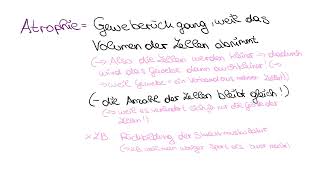 Atrophie= Geweberückgang, weil das
Volumen der Zellen abnimmt
(→ Also die Zellen werden kleiner → dadurch
wird das Gewebe dann auch kleiner (→
→ weil Gewebe = ein Verband aus mehrer Zellen))
(- die Anzahl der Zellen bleibt gleich!)
(→ weil es verändert sich ja nur die Größe der
Zellen!)
x z.B. Rückbildung der Skelettmuskulatur
(→ z.B. weil man weniger Sport als zuvor macht)